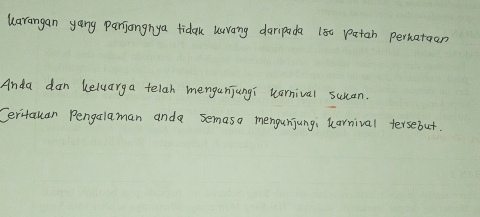 Karangan yang panjangnya tidak kurang daripada 180 patah perkataan
Anda dan keluarga telah mengunjungi karnival sukan.
Ceritakan pengalaman anda semasa mengunjungi karnival tersebut.